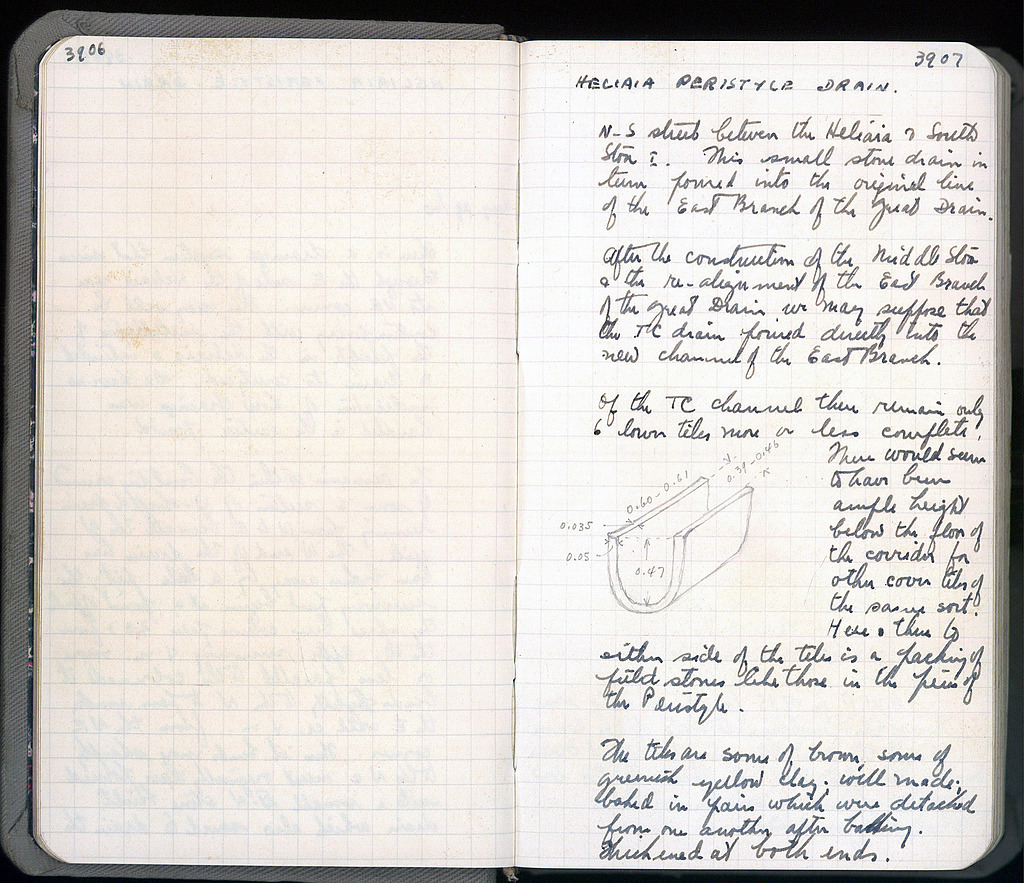 3906
3907
HELIAIA PERISTYLE DRAIN.
N-S street between the Heliaia & South
Stoa I. This small stone drain in
turn joined into the original line
of the East Branch of the Great Drain.
After the construction of the Middle Stoa
& the re-alignment of the East Branch
of the Great Drain we may suppose that
the TC drain joined directly into the
new channel of the East Branch.
Of the TC channel there remain only
6 down tiles more or less complete.
There would seem
to have been
ample height
below the floor of
the corridor for
other cover tiles of
the same sort.
Here & there to
either side of the tiles is a packing of
field stones like those in the piers of
the Peristyle.
0.60-0.61
0.39-0.46
0.035
0.05
0.47
The tiles are some of brown, some of
greenish yellow clay; well made;
baked in pairs which were detached
from one another after baking.
Thickened at both ends.